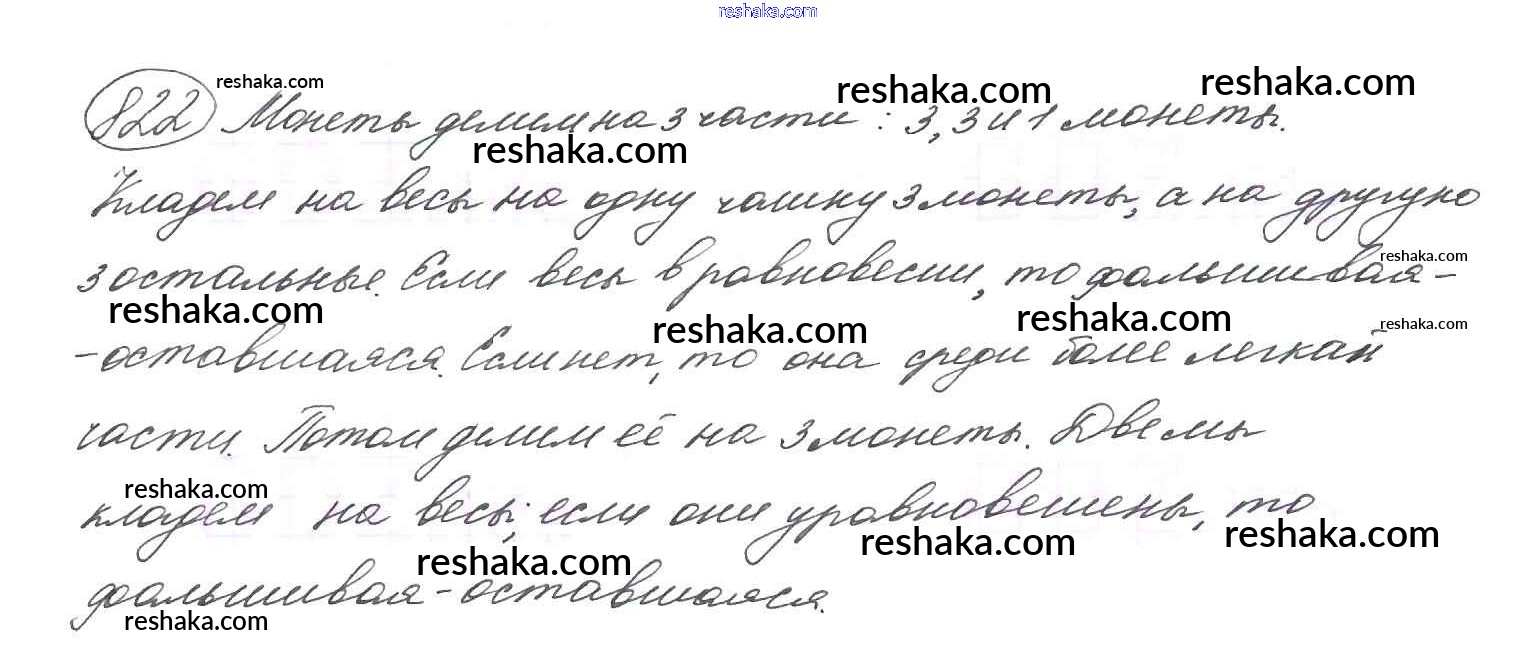 reshaka.com
822 reshaka.com Монеты делим на 3 части: 3, 3 и 1 монеты. reshaka.com reshaka.com
reshaka.com
Кладем на весы на одну чашку 3 монеты, а на другую
3 остальные. Если весы в равновесии, то фальшивая - reshaka.com
reshaka.com reshaka.com reshaka.com reshaka.com
- оставшаяся. Если нет, то она среди более легкай
части. Потом делим её на 3 монеты. Две мы
reshaka.com
кладем на весы; если они уравновешены, то
reshaka.com reshaka.com reshaka.com
фальшивая - оставшаяся.
reshaka.com